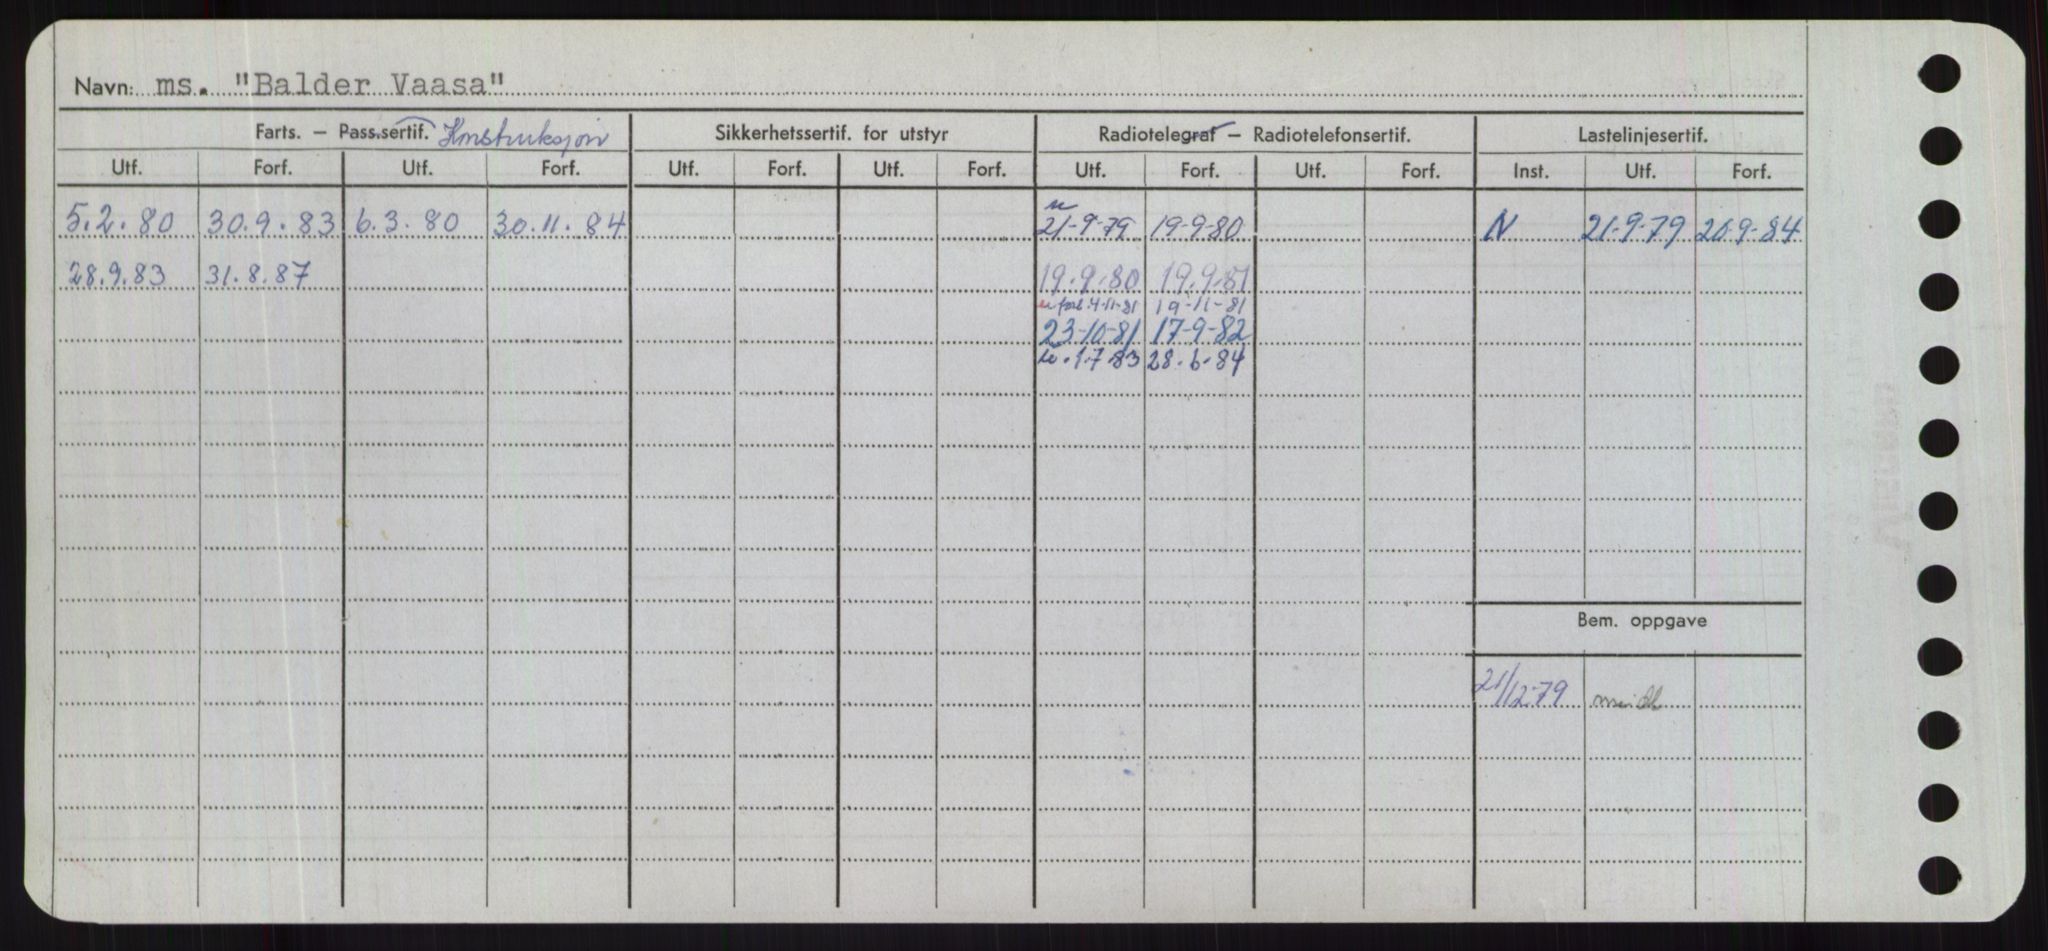 Navn: ms. "Balder Vaasa"
Farts. – Pass.sertif. Konstruksjon Sikkerhetssertif. for utstyr Radiotelegraf – Radiotelefonsertif. Lastelinjesertif.
Utf. Forf. Utf. Forf. Utf. Forf. Utf. Forf. Utf. Forf. Utf. Forf. Inst. Utf. Forf.
5.2.80 30.9.83 6.3.80 30.11.84 21-9-79 19-9-80 N 21-9-79 20-9-84
28.9.83 31.8.87 19.9.80 19.9.81
forl. 4-11-81 19-11-81
23-10-81 17-9-82
1.7.83 28.6.84
Bem. oppgave
21/12-79